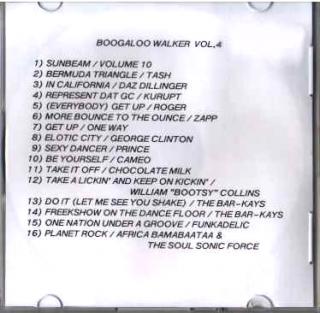 BOOGALOO WALKER VOL.4
1) SUNBEAM / VOLUME 10
2) BERMUDA TRIANGLE / TASH
3) IN CALIFORNIA / DAZ DILLINGER
4) REPRESENT DAT GC / KURUPT
5) (EVERYBODY) GET UP / ROGER
6) MORE BOUNCE TO THE OUNCE / ZAPP
7) GET UP / ONE WAY
8) ELOTIC CITY / GEORGE CLINTON
9) SEXY DANCER / PRINCE
10) BE YOURSELF / CAMEO
11) TAKE IT OFF / CHOCOLATE MILK
12) TAKE A LICKIN' AND KEEP ON KICKIN' /
WILLIAM "BOOTSY" COLLINS
13) DO IT (LET ME SEE YOU SHAKE) / THE BAR-KAYS
14) FREEKSHOW ON THE DANCE FLOOR / THE BAR-KAYS
15) ONE NATION UNDER A GROOVE / FUNKADELIC
16) PLANET ROCK / AFRICA BAMABAATAA &
THE SOUL SONIC FORCE